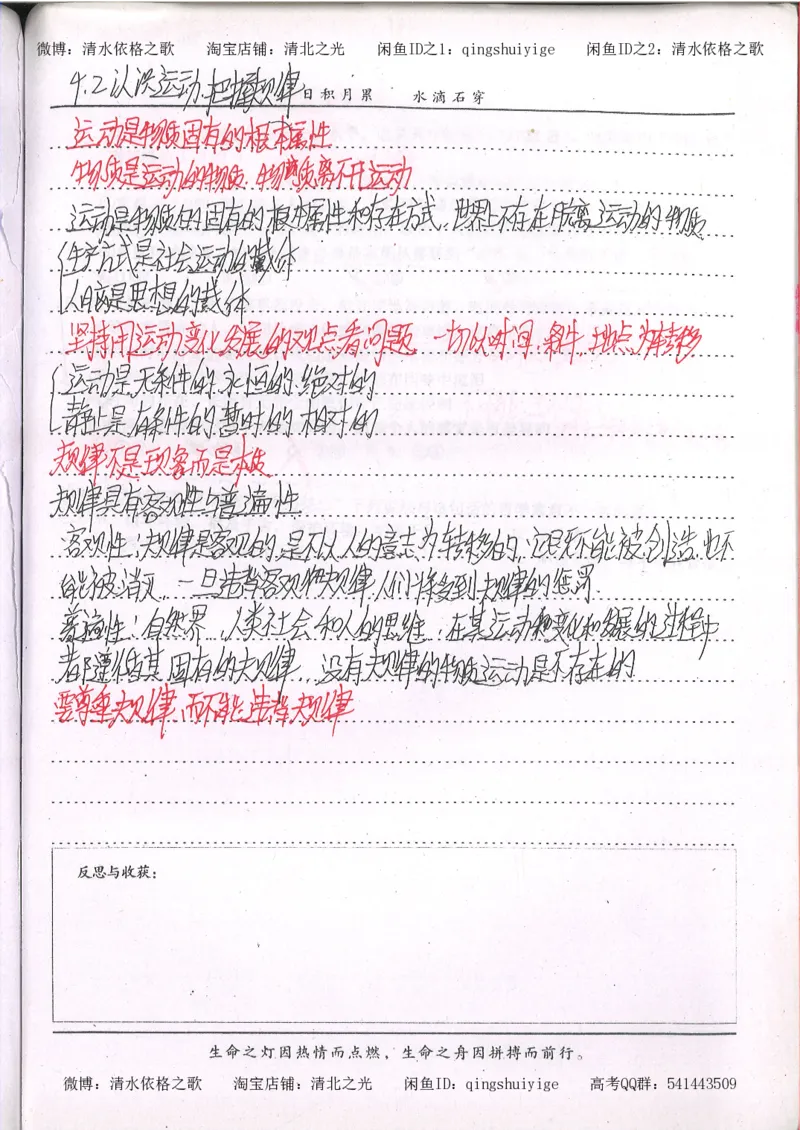 微博：清水依格之歌 淘宝店铺：清北之光 闲鱼ID之1：qingshuiyige 闲鱼ID之2：清水依格之歌
4.2认识运动.把握规律 日积月累 水滴石穿
运动是物质固有的根本属性
物质是运动的物质.物质离不开运动
运动是物质的固有的根本属性和存在方式.世界上不存在脱离运动的物质
生产方式是社会运动的载体
人脑是思想的载体
坚持用运动变化发展的观点看问题 一切以时间.条件.地点为转移
运动是无条件的.永恒的.绝对的
静止是有条件的 暂时的 相对的
规律不是现象而是本质
规律具有客观性与普遍性
客观性:规律是客观的,是不以人的意志为转移的,它既不能被创造.也不
能被消灭.一旦违背客观规律,人们将受到规律的惩罚
普遍性:自然界.人类社会和人的思维.在其运动和变化和发展的过程中
都遵循其固有的规律.没有规律的物质运动是不存在的
要尊重规律.而不能违背规律
反思与收获：
生命之灯因热情而点燃，生命之舟因拼搏而前行。
微博：清水依格之歌 淘宝店铺：清北之光 闲鱼ID：qingshuiyige 高考QQ群：541443509